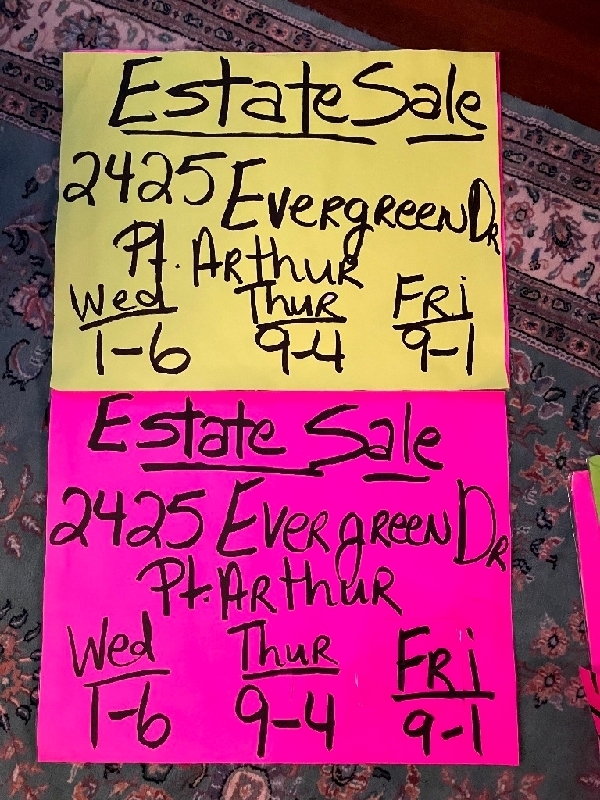 Estate Sale
2425 Evergreen Dr
Pt. Arthur
Wed Thur Fri
1-6 9-4 9-1
Estate Sale
2425 Evergreen Dr
Pt. Arthur
Wed Thur Fri
1-6 9-4 9-1